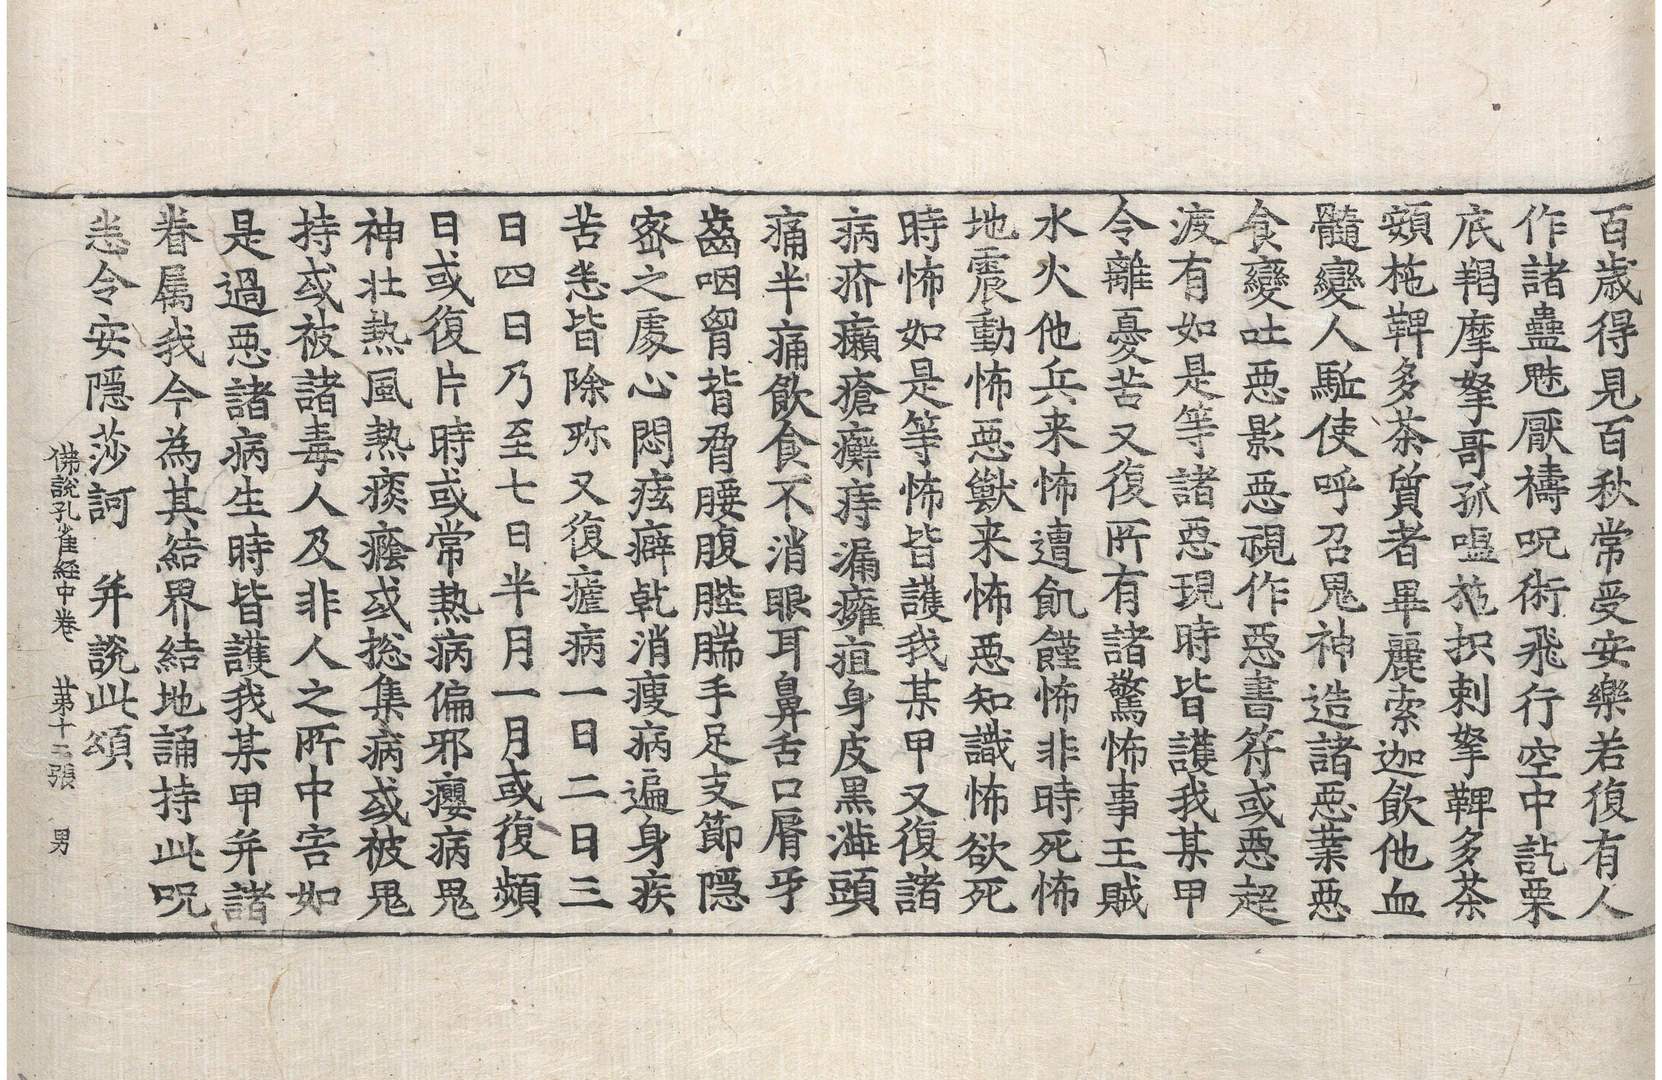 百歳得見百秋常受安樂若復有人
作諸蠱魅厭禱呪術飛行空中訖栗
底羯摩拏哥孤嗢拖枳剌拏鞞多茶
頞柂鞞多茶質者畢麗索迦飲他血
髓變人駈使呼召鬼神造諸惡業惡
食變吐惡影惡視作惡書符或惡超
渡有如是等諸惡現時皆護我某甲
令離憂苦又復所有諸驚怖事王賊
水火他兵来怖遭飢饉怖非時死怖
地震動怖惡獸来怖惡知識怖欲死
時怖如是等怖皆護我某甲又復諸
病疥癩瘡癬痔漏癰疽身皮黑澁頭
痛半痛飲食不消眼耳鼻舌口脣牙
齒咽胷背脅腰腹䏶腨手足支節隱
密之處心悶痃癖乹消瘦病遍身疾
苦恙皆除殄又復瘧病一日二日三
日四日乃至七日半月一月或復頻
日或復片時或常熱病偏邪癭病鬼
神壯熱風熱痰癊或摠集病或被鬼
持或被諸毒人及非人之所中害如
是過惡諸病生時皆護我某甲并諸
眷属我今為其結界結地誦持此呪
恙令安隱莎訶　并說此頌
佛說孔雀經中卷　苐十二張　男